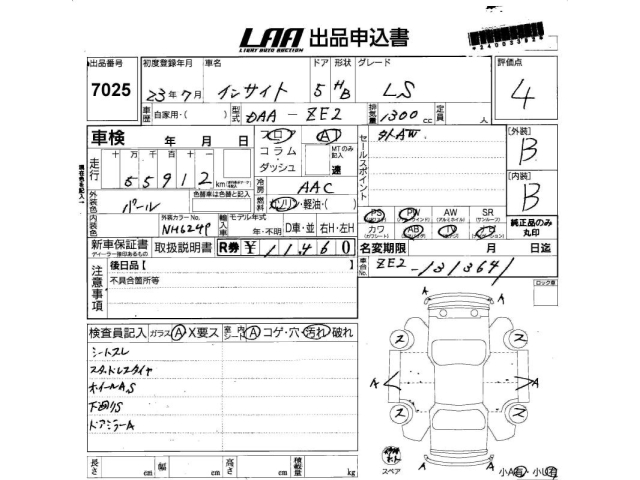 LAA 出品申込書
LIGHT AUTO AUCTION
出品番号 初度登録年月 車名 ドア 形状 グレード 評価点
7025 23年7月 インサイト 5 HB LS 4
車歴 自家用・( ) 型式 DAA - ZE2 排気量 1300cc 定員 人
車検 年 月 日
フロア コラム ダッシュ
AT MTのみ記入 速
セールスポイント 外AW
[外装] B
[内装] B
走行 十万 千 百 十 一
55912 km
現在色を記入→
外装色 パール
色替車は色替と記入
内装色
外装カラーNo. NH624P
冷房 AAC
燃料 ガソリン・軽油・( )
輸入車 モデル年式 年・不明 D車・並 右H・左H
PS PW AW SR
カワ AB TV ナビ
純正品のみ丸印
新車保証書 取扱説明書 R券 ¥11460
ディーラー捺印あるもの
名変期限 月 日迄
車台No. ZE2-1313641
注意事項 後日品[ ]
不具合箇所等
ロック車
検査員記入 ガラス A X要ス 室内シート A コゲ・穴 汚れ 破れ
シートスレ
スタッドレスタイヤ
ホイールA,S
下廻りS
ドアミラーA
A A
2 2
A A
2 2
A A
スペア
小A有・小U有
長さ cm 幅 cm 高さ cm 積載量 kg